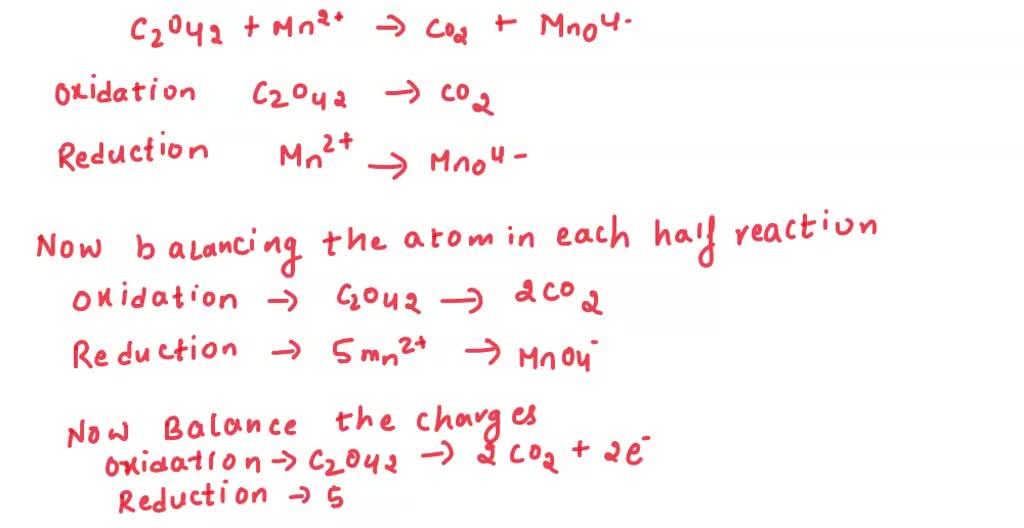 C2O42 + Mn2+ → CO2 + MnO4-
Oxidation C2O42 → CO2
Reduction Mn2+ → MnO4-
Now balancing the atom in each half reaction
Oxidation → C2O42 → 2CO2
Reduction → 5mn2+ → MnO4-
Now Balance the charges
Oxidation → C2O42 → 2CO2 + 2e-
Reduction → 5